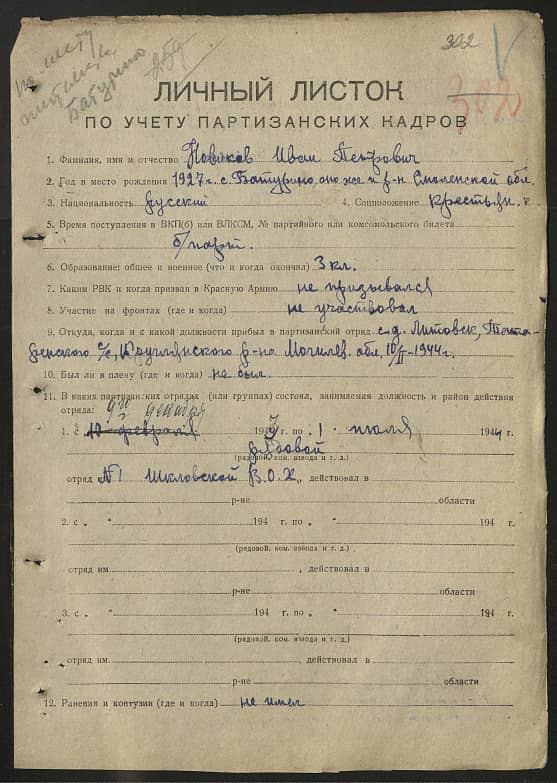 302
по месту
Батурино
ЛИЧНЫЙ ЛИСТОК
ПО УЧЕТУ ПАРТИЗАНСКИХ КАДРОВ
1. Фамилия, имя и отчество Новиков Иван Петрович
2. Год и место рождения 1927 г. с. Батурино, оно же и р-н Смоленской обл.
3. Национальность русский 4. Соцположение крестьян. к.
5. Время поступления в ВКП(б) или ВЛКСМ, № партийного или комсомольского билета
б/парт.
6. Образование: общее и военное (что и когда окончил) 3 кл.
7. Каким РВК и когда призван в Красную Армию не призывался
8. Участие на фронтах (где и когда) не участвовал
9. Откуда, когда и с какой должности прибыл в партизанский отряд с. д. Литовск, Тета-
ренского с/с, Круглянского р-на Могилев. обл. 10/II-1944 г.
10. Был ли в плену (где и когда) не был
11. В каких партизанских отрядах (или группах) состоял, занимаемая должность и район действия
отряда: декабря
1. с 10 февраля 194 г. по 1 июля 1944 г.
рядовой
(рядовой, ком. взвода и т. д.)
отряд №1 Шкловской В.О.Х., действовал в
р-не области
2. с " " 194 г. по " " 194 г.
(рядовой, ком. взвода и т. д.)
отряд им. , действовал в
р-не области
3. с " " 194 г. по " 194 г.
(рядовой, ком. взвода и т. д.)
отряд им. действовал в
р-не области
12. Ранения и контузии (где и когда) не имел